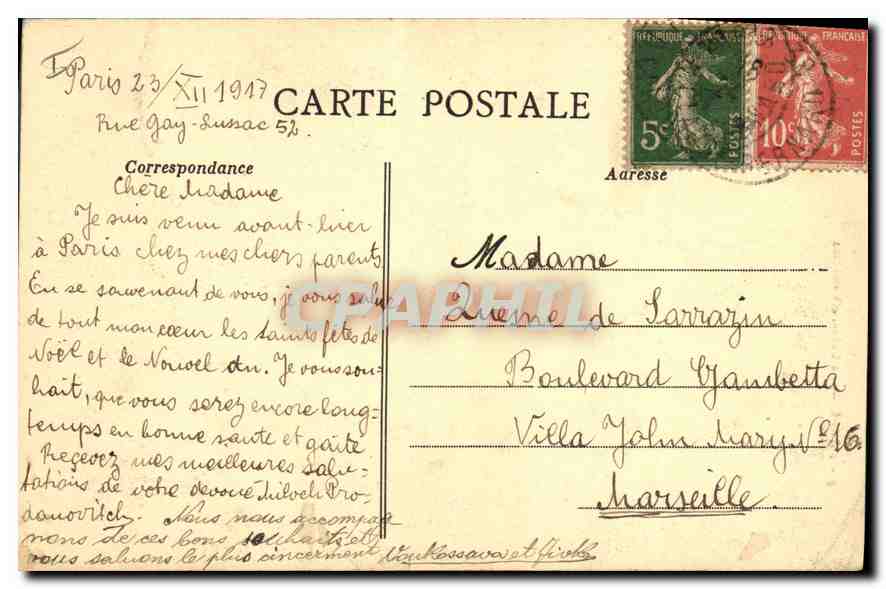 Paris 23/XII 1917
Rue Gay-Lussac 52.
CARTE POSTALE
REPUBLIQUE FRANÇAISE
5c
POSTES
REPUBLIQUE FRANÇAISE
10c
POSTES
Correspondance
Chère Madame
Je suis venu avant-hier
à Paris chez mes chers parents
En se souvenant de vous, je vous salue
de tout mon coeur les saints fêtes de
Noël et le Nouvel An. Je vous sou-
hait, que vous serez encore long-
temps en bonne santé et gaîté
Reçevez mes meilleures salu-
tations de votre devoué Miloch Pro-
danovitch. Nous nous accompag
nons de ces bons souhaits et
vous saluons le plus cincerment Voukossava et Jivko
Adresse
Madame
Quesne de Sarrazin
Boulevard Gambetta
Villa John Mary No 16.
Marseille.
CPAPHIL